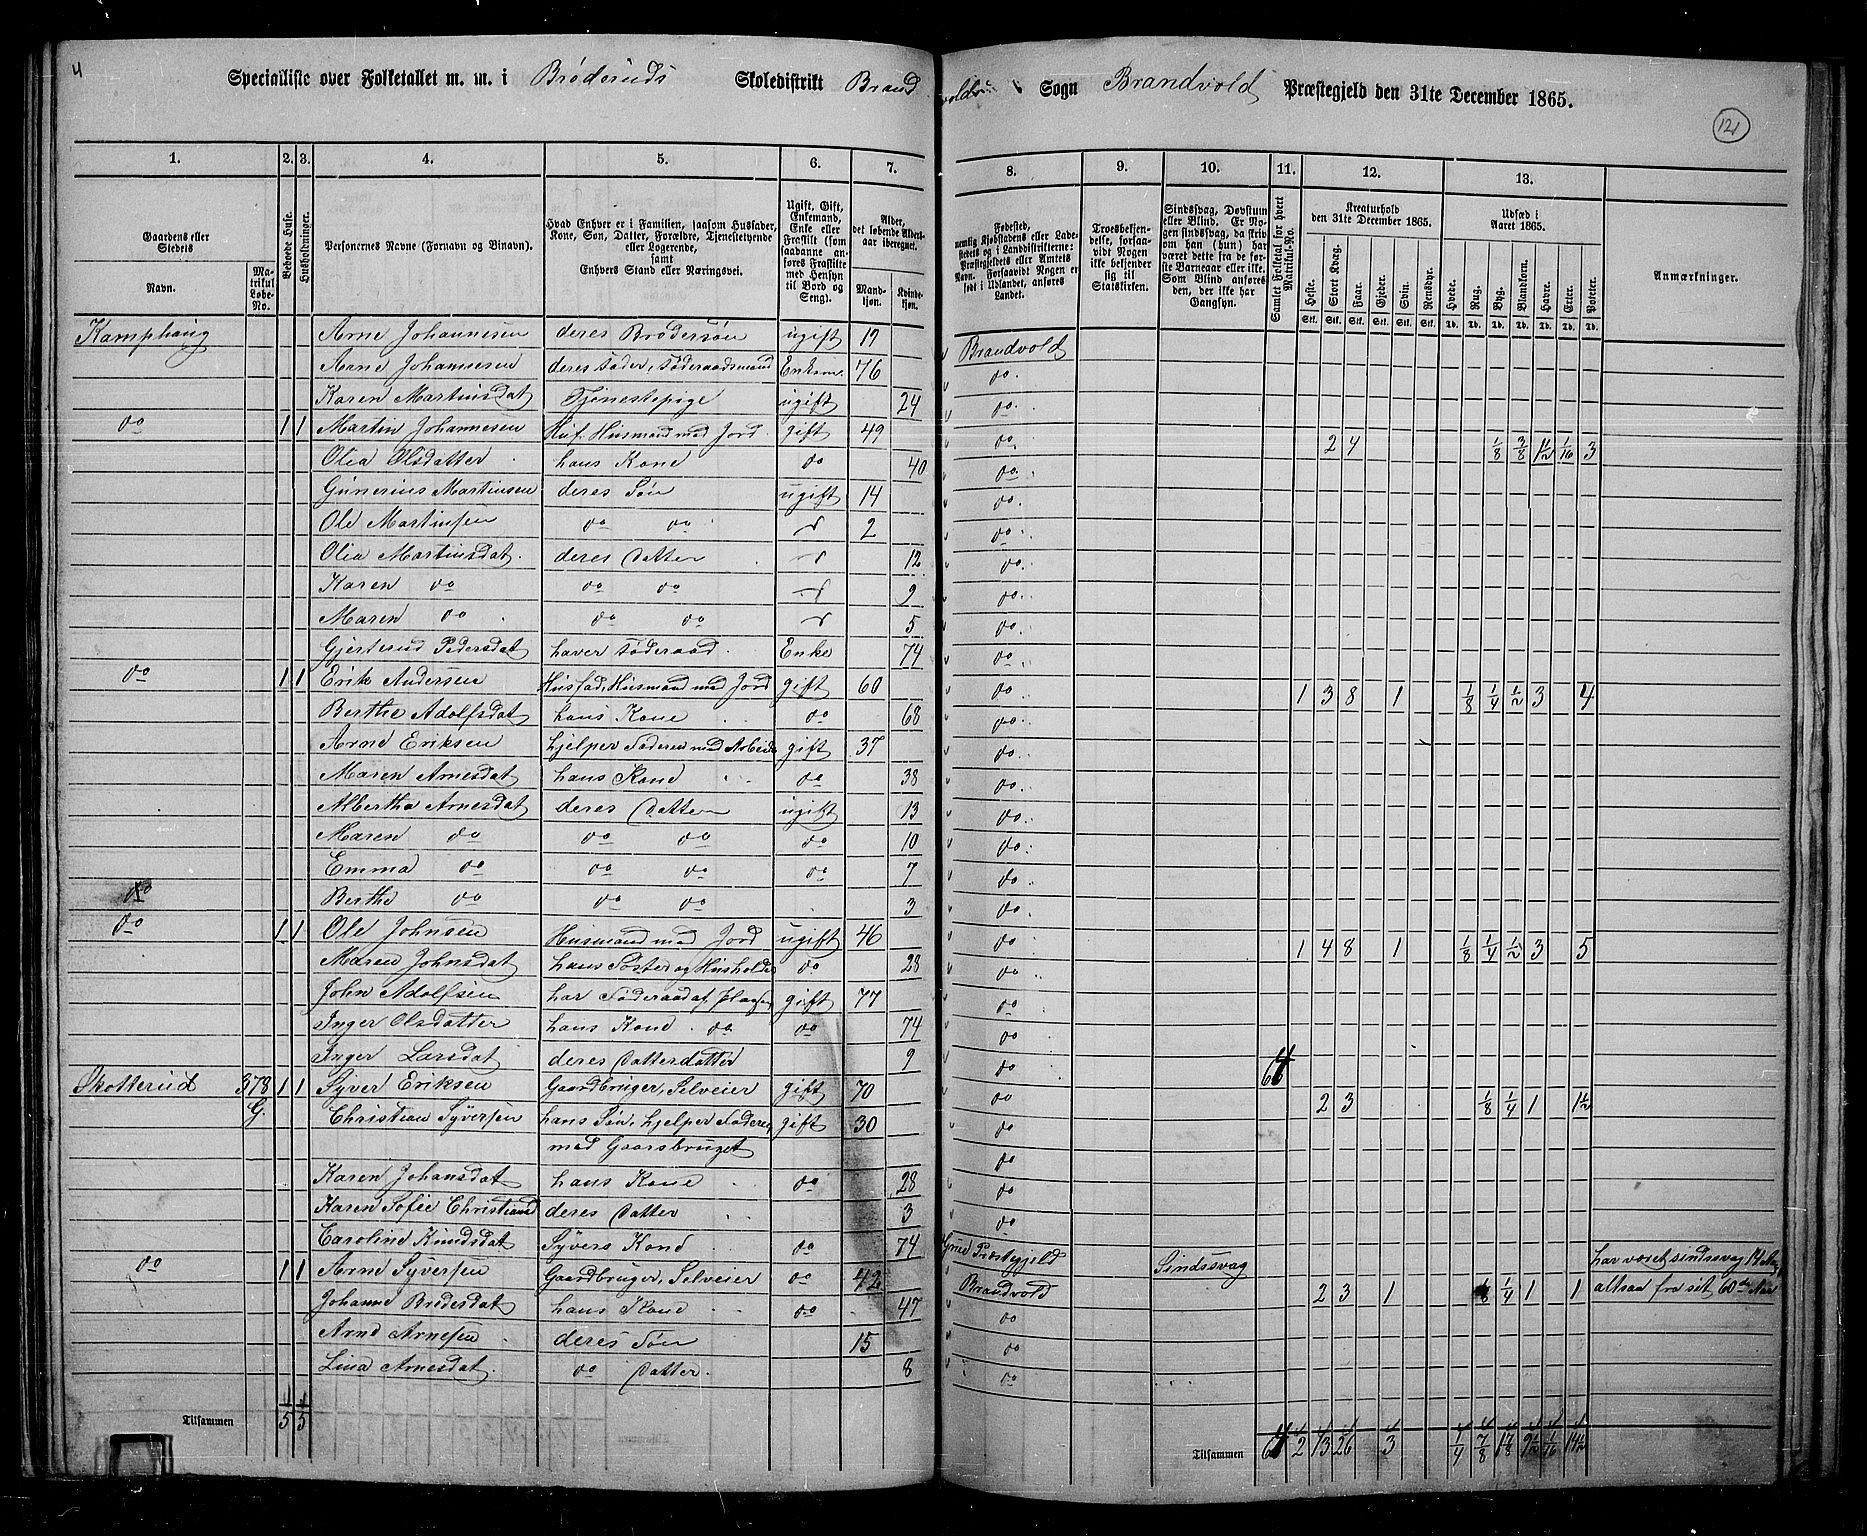 4
Specialliste over Folketallet m. m. i Brøderuds Skoledistrikt Brand
voldu Sogn Brandvold Præstegjeld den 31te December 1865.
121
1. 2. 3. 4. 5. 6. 7. 8. 9. 10. 11. 12. 13.
Gaardens eller Stedets
Navn.
Matrikul Løbe-No.
Beboede Huse.
Husholdninger.
Personernes Navne (Fornavn og Binavn).
Hvad Enhver er i Familien, saasom Husfader, Kone, Søn, Datter, Forældre, Tjenestetyende eller Logerende, samt Enhvers Stand eller Næringsvei.
Ugift, Gift, Enkemand, Enke eller Fraskilt (som saadanne anføres Fraskilte med Hensyn til Bord og Seng).
Alder, det løbende Aldersaar iberegnet.
Mandkjøn. Kvindekjøn.
Fødested, nemlig Kjøbstadens eller Ladestedets og i Landdistrikterne: Præstegjeldets eller Amtets Navn. Forsaavidt Nogen er født i Udlandet, anføres Landet.
Troesbekjendelse, forsaavidt Nogen ikke bekjender sig til Statskirken.
Sindssvag, Døvstum eller Blind. Er Nogen sindssvag, da skriv om han (hun) har været dette fra de første Barneaar eller ikke. Som Blind anføres den, der ikke har Gangsyn.
Samlet Folketal for hvert Matrikul-No.
Kreaturhold den 31te December 1865.
Heste. Stort Kvæg. Faar. Gjeder. Svin. Rensdyr.
Stk. Stk. Stk. Stk. Stk. Stk.
Udsæd i Aaret 1865.
Hvede. Rug. Byg. Blandkorn. Havre. Erter. Poteter.
Td. Td. Td. Td. Td. Td. Td.
Anmærkninger.
Kamphaug Arne Johannesen deres Brodersøn ugift 17 Brandvold
Arne Johannesen deres Fader, Føderaadsmand Enkem. 76 do
Karen Martinsdat Tjenestepige ugift 24 do
do 1 1 Martin Johannesen Huf. Husmand med Jord gift 49 do 2 4 1/8 3/8 1 1/2 1/16 3
Olia Olsdatter hans Kone do 40 do
Gunerius Martinsen deres Søn ugift 14 do
Ole Martinsen do do 2 do
Olia Martinsdat. deres Datter 12 do
Karen do do do 9 do
Maren do do do 5 do
Gjerterud Pedersdat haver Føderaad Enke 74 do
do 1 1 Erik Andersen Husfad, Husmand med Jord gift 60 do 1 3 8 1 1/8 1/4 1/2 3 4
Berthe Adolfsdat hans Kone do 68 do
Arne Eriksen hjelper Faderen med Arbeide gift 37 do
Maren Arnesdat hans Kone do 38 do
Albertha Arnesdat deres Datter ugift 13 do
Maren do do do do 10 do
Emma do do do do 7 do
do Berthe do do do 3 do
do 1 1 Ole Johnsen Husmand med Jord ugift 46 do 1 4 8 1 1/8 1/4 1/2 3 5
Maren Johnsdat hans Søster og Husholder do 28 do
John Adolfsen har Føderaad af gift 77 do
Inger Olsdatter hans Kone do do 74 do
Inger Larsdat deres Datterdatter 9 do 64
Skotterud 378 1 1 Syver Eriksen Gaardbruger, Selveier gift 70 do 2 3 1/8 1/4 1 1 1/2
G. Christian Syversen hans Søn, hjelper Faderen gift 30 do
med Gaarsbruget do
Karen Johansdat hans Kone do 28 do
Karen Sofie Christiansd deres Datter 3 do
Caroline Knudsdat Syvers Kone do 74 Grue Præstegjeld Sindssvag har været sindssvag 14 Aar,
do 1 1 Arne Syversen Gaardbruger, Selveier do 42 Brandvold 2 3 1 1/8 1/4 1 1 altsaa fra sit 60de Aar
Johanne Bredesdat hans Kone do 47 do
Arne Arnesen deres Søn 15 do
Lina Arnesdat. do Datter. 8 do
Tilsammen 5 5
Tilsammen 64 2 13 26 3 1/4 7/8 1 7/8 9 1/2 1/16 14 1/2